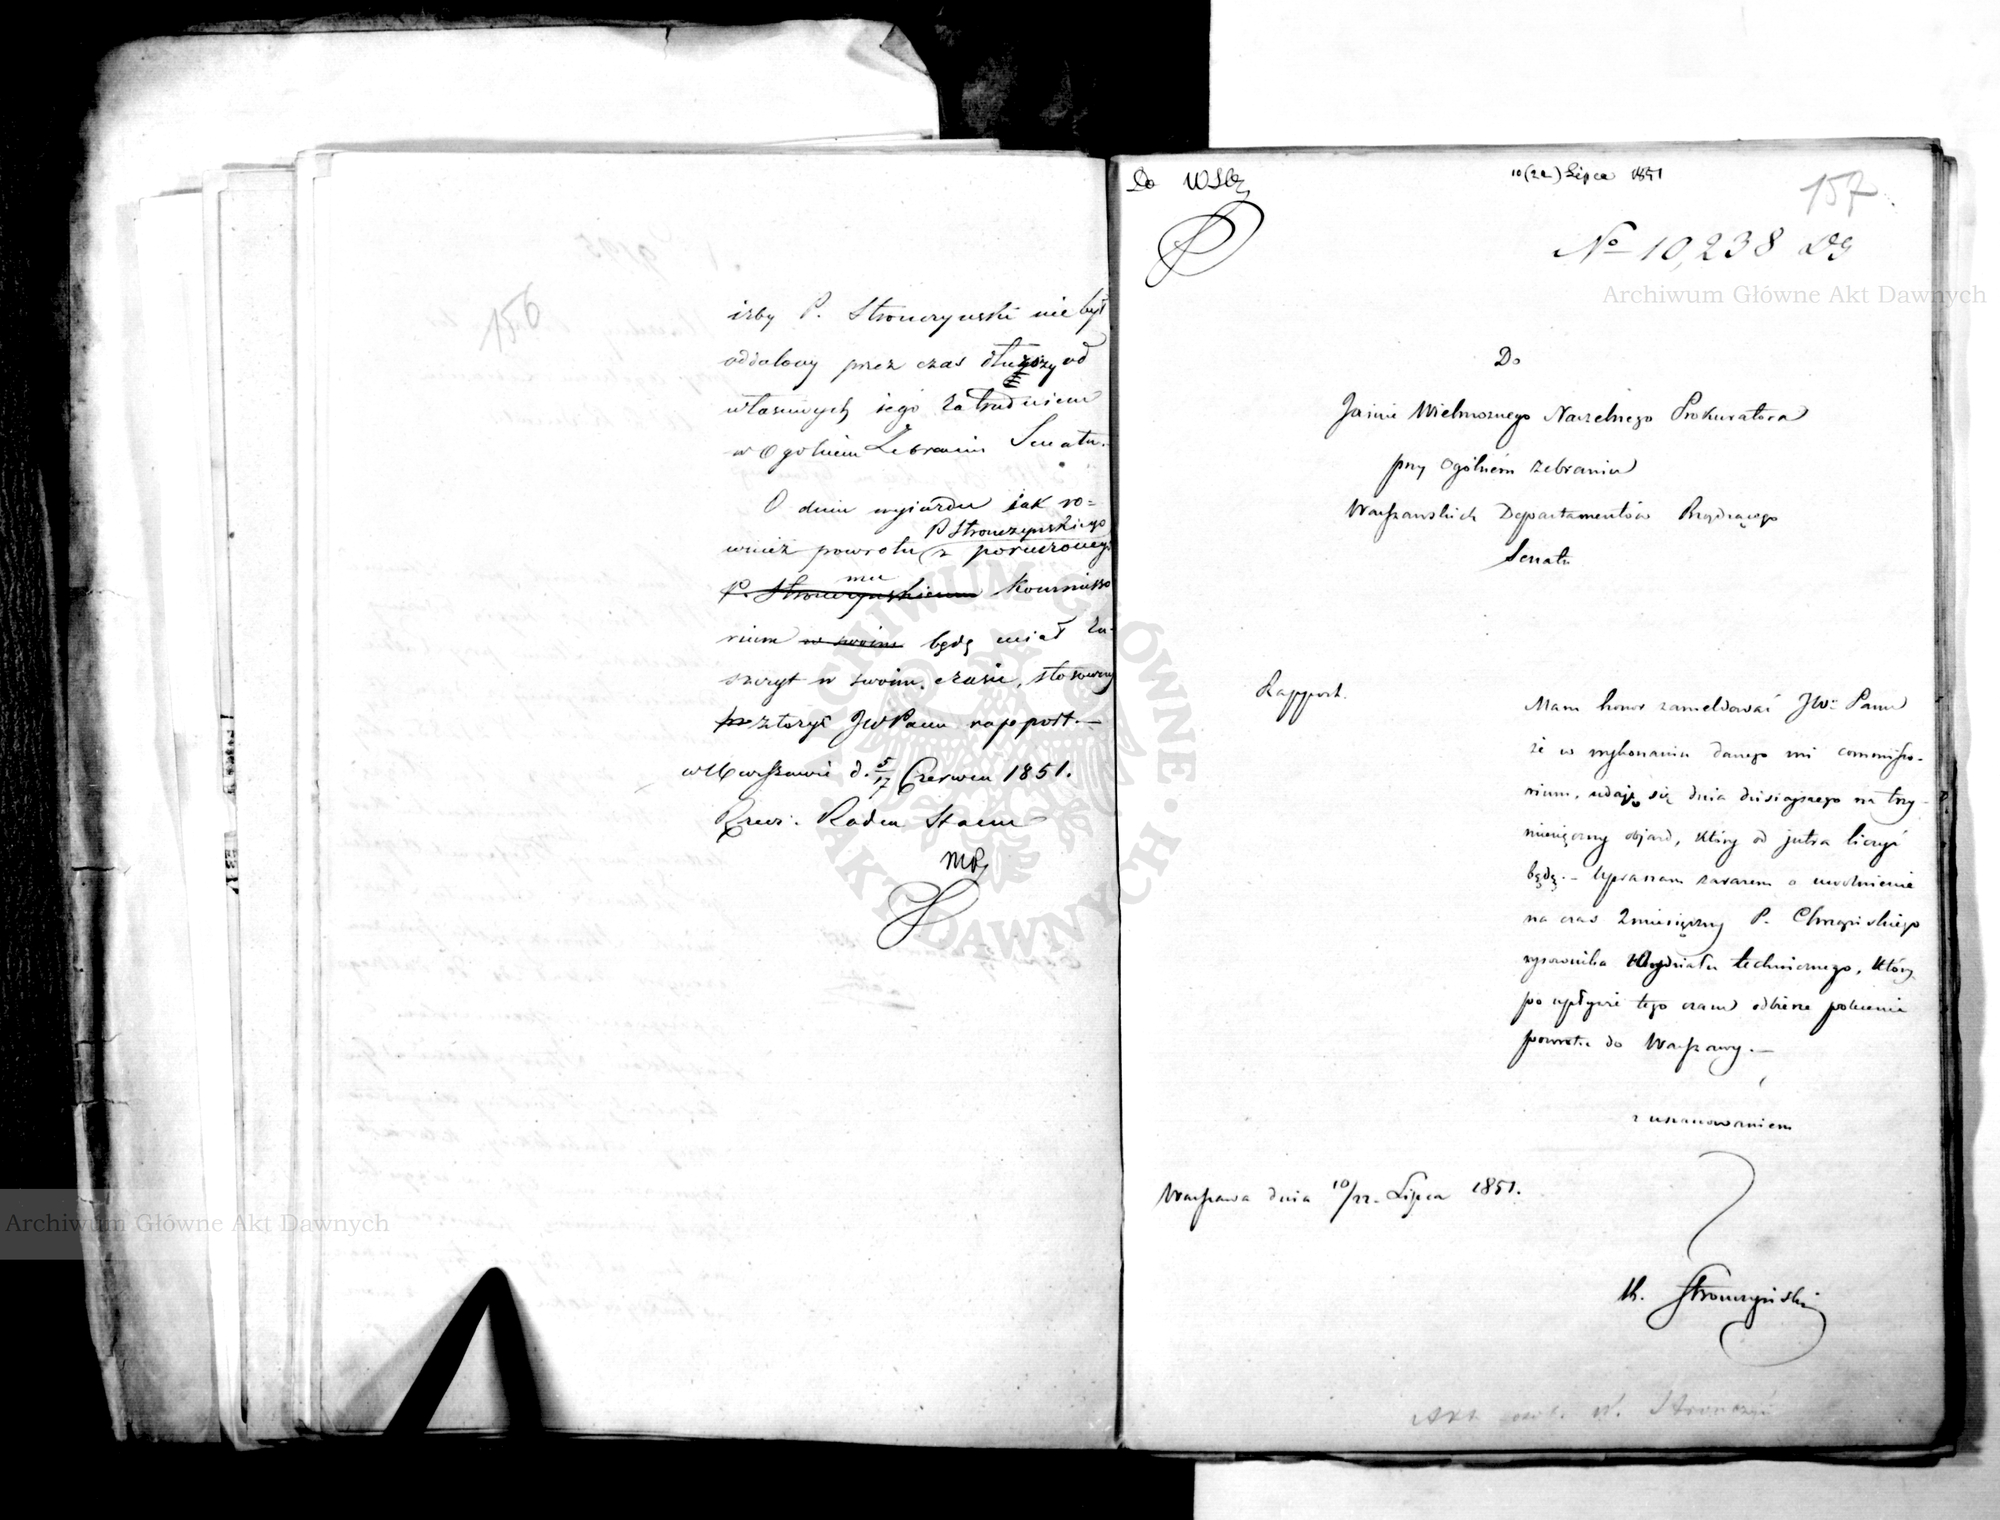 156
iżby P. Stronczynski nie był
oddalony przez czas dłuższy od
właściwych jego zatrudnień
w Ogólnem Zebraniu Senatu.
O dniu wyjazdu jak ró=
P Stronczynskiego
wnież powrotu z poruczonego
mu
P. Stronczynskiemu Kommisso
rium w swoim będę miał za-
szczyt w swoim czasie, stosowny
złożyć JWPanu rapport.—
w Warszawie d. 5/17 Czerwca 1851.
Rzecz. Radca Stanu
Do
10(22) Lipca 1851
157
No 10,238
Do
Jaśnie Wielmożnego Naczelnego Prokuratora
przy Ogólnem Zebraniu
Warszawskich Departamentów Rządzącego
Senatu
Rapport.
Mam honor zameldować JWu Panu
że w wykonaniu danego mi commisso-
rium, udaję się dnia dzisiejszego na trzy-
miesięczny objazd, który od jutra liczyć
będę.— Upraszam zarazem o uwolnienie
na czas 2miesięczny P.
rysownika Wydziału technicznego, który
po upływie tego czasu odbierze polecenie
powrotu do Warszawy.—
z uszanowaniem
Warszawa dnia 10/22. Lipca 1851.
K. Stronczyński
Akt. osob. K. Stronczyń
Archiwum Główne Akt Dawnych
Archiwum Główne Akt Dawnych
ARCHIWUM GŁÓWNE AKT DAWNYCH